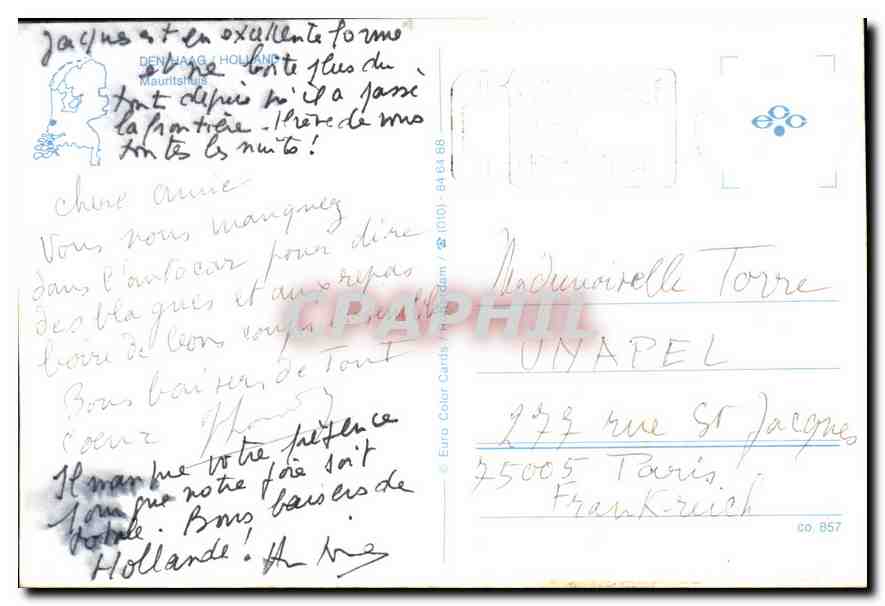 Jacques est en excellente forme
DEN HAAG / HOLLAND
Mauritshuis
et ne boite plus du
tout depuis qu'il a passé
la frontière. Il rêve de vous
toutes les nuits !
Chère amie
Vous nous manquez
dans l'autocar pour dire
des blagues et aux repas
boire de bons coups ensemble
Bons baisers de tout
coeur
Il manque votre présence
pour que notre joie soit
totale. Bons baisers de
Hollande !
© Euro Color Cards / Rotterdam / ☎ (010) - 84 64 88
ecc
Mademoiselle Torre
UNAPEL
277 rue St Jacques
75005 Paris
Frankreich
co. 857
CPAPHIL